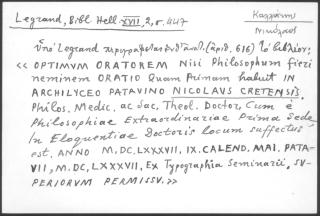 Legrand, Bibl. Hell. XVII, 2, σ. 447
Καλλιάκης
Νικόλαος
Ὑπὸ Legrand (ἀριθ. 616) τὸ βιβλίον:
« OPTIMUM ORATOREM Nisi Philosophum fieri
neminem ORATIO Quam Primam habuit IN
ARCHILYCEO PATAVINO NICOLAUS CRETENSIS.
Philos. Medic. ac Sac. Theol. Doctor, Cum è
Philosophiae Extraordinariae Prima Sede
In Eloquentiae Doctoris locum suffectus
est. ANNO M,DC,LXXXVII, IX. CALEND. MAI. PATA-
VII, M.DC,LXXXVII, Ex Typographia Seminarii, SU-
PERIORUM PERMISSU. »